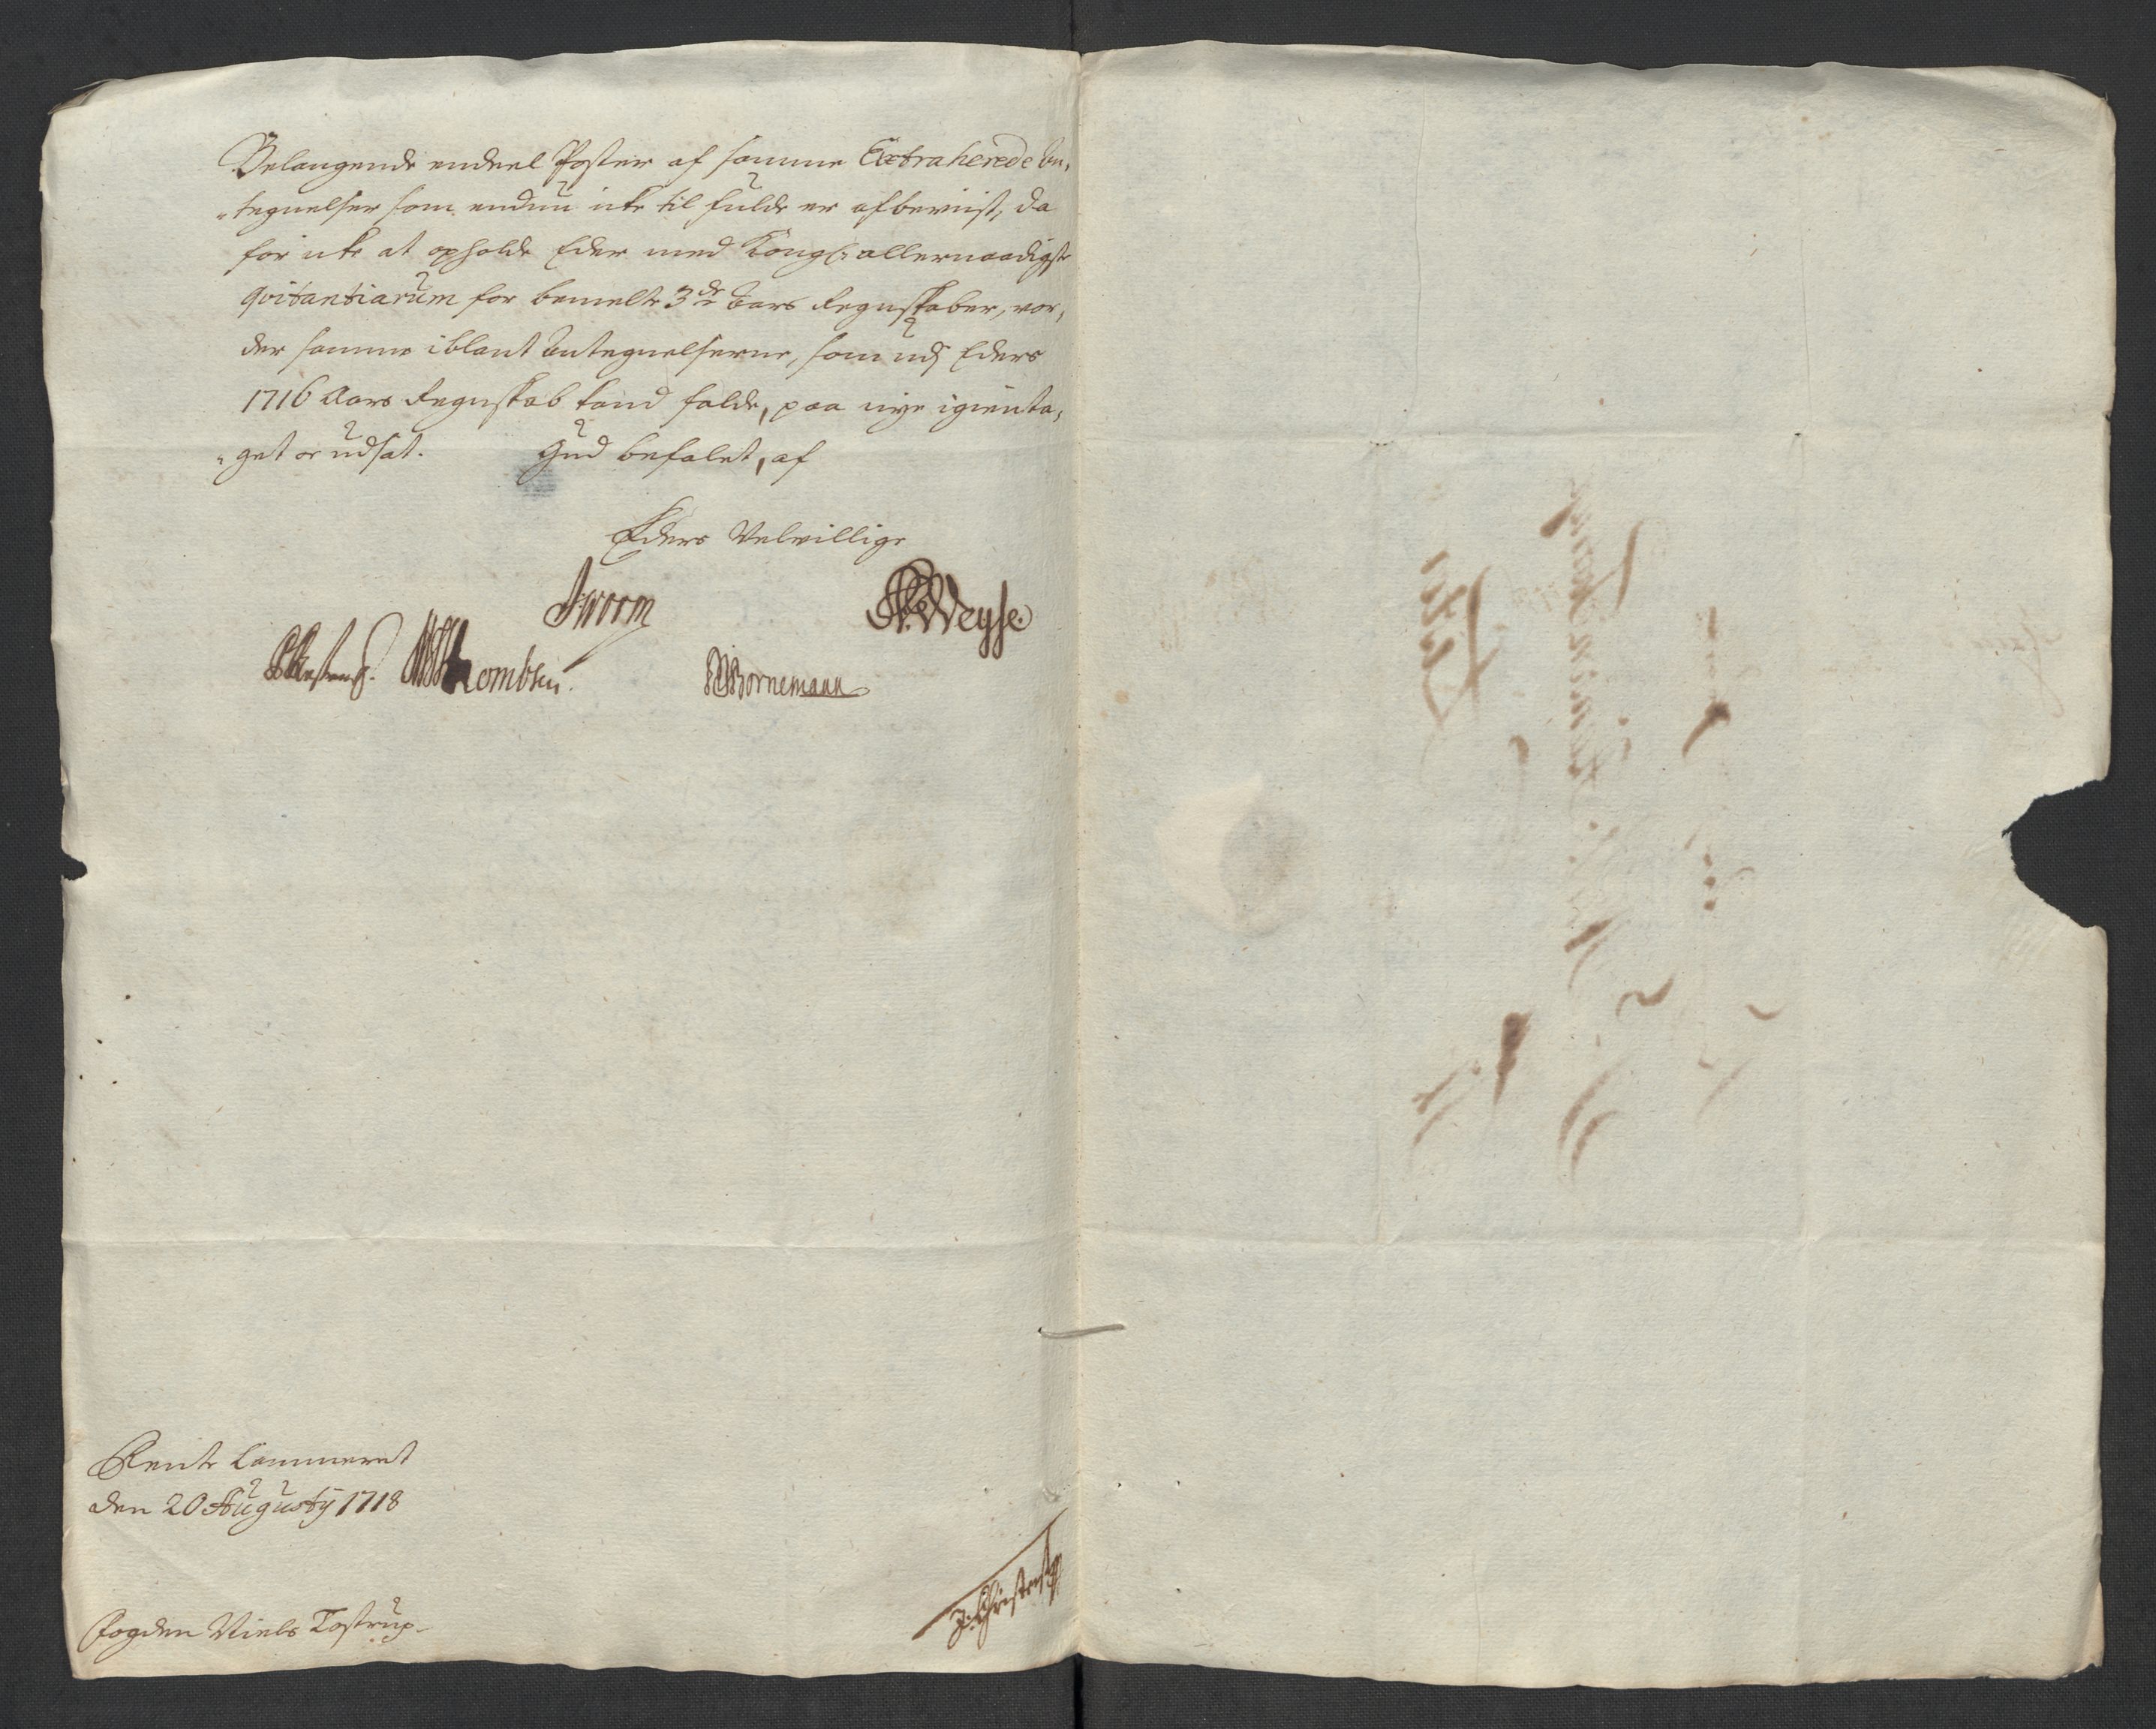 Belangende endeel Poster af samme Extraherede An,
„tegnelser som endnu icke til fulde er afbeviist, da
for icke at opholde Eder med Kongl: allernaadigste
qvitantiarum for bemelte 3de Aars Regnskaber, vor,
der samme iblant Antegnelserne, som udj Eders
1716 Aars Regnskab kand falde, paa nye igienta,
„get or udsat. Gud befalet, af
Eders Velvillige
Worm
Weyse.
Bornemann
Rente Cammeret
den 20 Augustij 1718
Fogden Niels Tostrup
J. Christensen